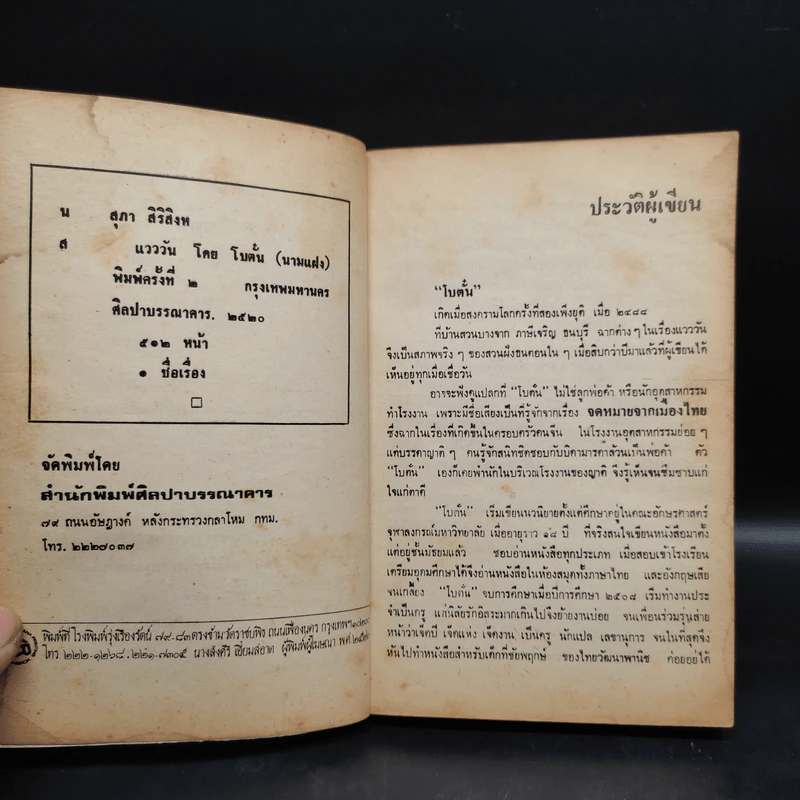 น สุภา สิริสิงห
ส แวววัน โดย โบตั๋น (นามแฝง)
พิมพ์ครั้งที่ ๒ กรุงเทพมหานคร
ศิลปาบรรณาคาร. ๒๕๒๐
๕๑๒ หน้า
๑ ชื่อเรื่อง
จัดพิมพ์โดย
สำนักพิมพ์ศิลปาบรรณาคาร
๗๙ ถนนอัษฎางค์ หลังกระทรวงกลาโหม กทม.
โทร. ๒๒๒๗๐๓๗
พิมพ์ที่ โรงพิมพ์รุ่งเรืองรัตน์ ๗๙-๘๓ ตรงข้ามวัดราชบพิธ ถนนเฟื่องนคร กรุงเทพฯ
โทร ๒๒๒-๑๒๖๘, ๒๒๑-๗๓๐๕ ผู้พิมพ์ผู้โฆษณา
ประวัติผู้เขียน
“โบตั๋น”
เกิดเมื่อสงครามโลกครั้งที่สองเพิ่งยุติ เมื่อ ๒๔๘๘
ที่บ้านสวนบางจาก ภาษีเจริญ ธนบุรี ฉากต่างๆ ในเรื่องแวววัน
จึงเป็นสภาพจริง ๆ ของสวนฝั่งธนตอนใน ๆ เมื่อสิบกว่าปีมาแล้วที่ผู้เขียนได้
เห็นอยู่ทุกเมื่อเชื่อวัน
อาจจะฟังดูแปลกที่ “โบตั๋น” ไม่ใช่ลูกพ่อค้า หรือนักอุตสาหกรรม
ทำโรงงาน เพราะมีชื่อเสียงเป็นที่รู้จักจากเรื่อง จดหมายจากเมืองไทย
ซึ่งฉากในเรื่องที่เกิดขึ้นในครอบครัวคนจีน ในโรงงานอุตสาหกรรมย่อย ๆ
แต่บรรดาญาติ ๆ คนรู้จักสนิทชิดชอบกับบิดามารดาล้วนเป็นพ่อค้า ตัว
“โบตั๋น” เองก็เคยพำนักในบริเวณโรงงานของญาติ จึงรู้เห็นจนซึมซาบแก่
ใจแก่ตาดี
“โบตั๋น” เริ่มเขียนนวนิยายตั้งแต่ศึกษาอยู่ในคณะอักษรศาสตร์
จุฬาลงกรณ์มหาวิทยาลัย เมื่ออายุราว ๑๘ ปี ที่จริงสนใจเขียนหนังสือมาตั้ง
แต่อยู่ชั้นมัธยมแล้ว ชอบอ่านหนังสือทุกประเภท เมื่อสอบเข้าโรงเรียน
เตรียมอุดมศึกษาได้จึงอ่านหนังสือในห้องสมุดทั้งภาษาไทย และอังกฤษเสีย
จนเกลี้ยง “โบตั๋น” จบการศึกษาเมื่อปีการศึกษา ๒๕๐๘ เริ่มทำงานประ
จำเป็นครู แต่นิสัยรักอิสระมากเกินไปจึงย้ายงานบ่อย จนเพื่อนร่วมรุ่นส่าย
หน้าว่าเจ็ดปี เจ็ดแห่ง เจ็ดงาน เป็นครู นักแปล เลขานุการ จนในที่สุดจึง
หันไปทำหนังสือสำหรับเด็กที่ชัยพฤกษ์ ของไทยวัฒนาพานิช ค่อยอยู่ได้